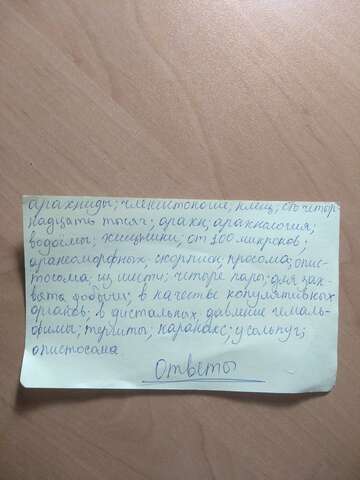 арахниды; членистоногие, клещ, сто четыр-
надцать тысяч; арахн, арахнология,
водоёмы; хищники, от 100 микронов;
аранеоморфных, скорпион, просома; опис-
тосома из шести; четыре пары; для зах-
вата добычи; в качестве копулятивных
органов; в дистальных, давление гемоль-
фимы; термиты; карапакс; у сольпуг;
опистосома.
Ответы